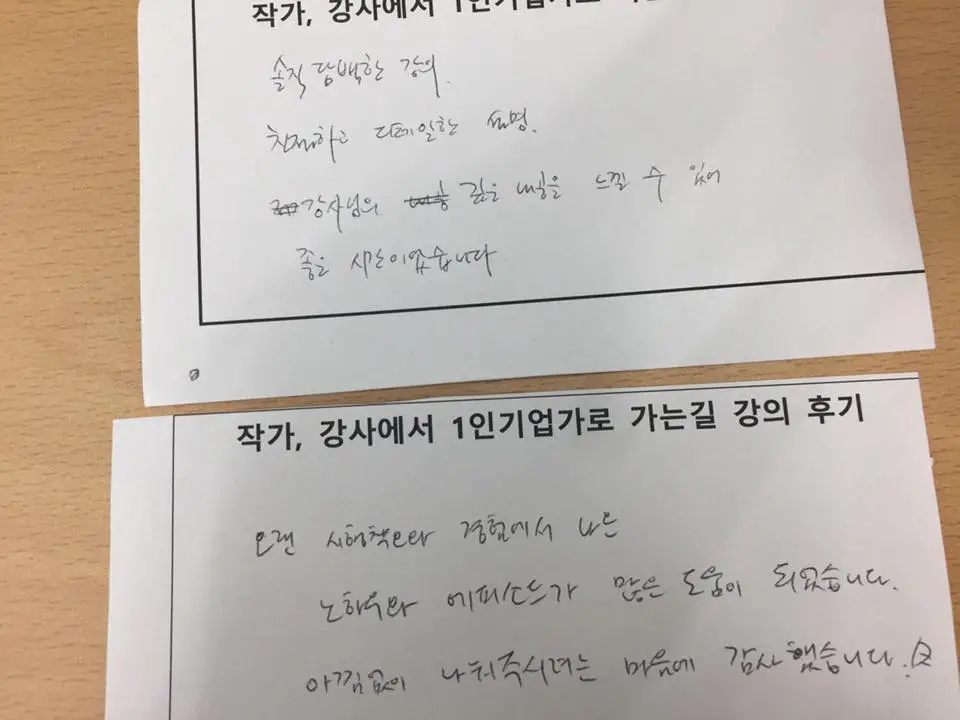 작가, 강사에서 1인기업가로
솔직 담백한 강의.
친절하고 디테일한 설명.
강사님의 깊은 내공을 느낄 수 있어
좋은 시간이었습니다
작가, 강사에서 1인기업가로 가는길 강의 후기
오랜 시행착오와 경험에서 나온
노하우와 에피소드가 많은 도움이 되었습니다.
아낌없이 나눠주시려는 마음에 감사했습니다.